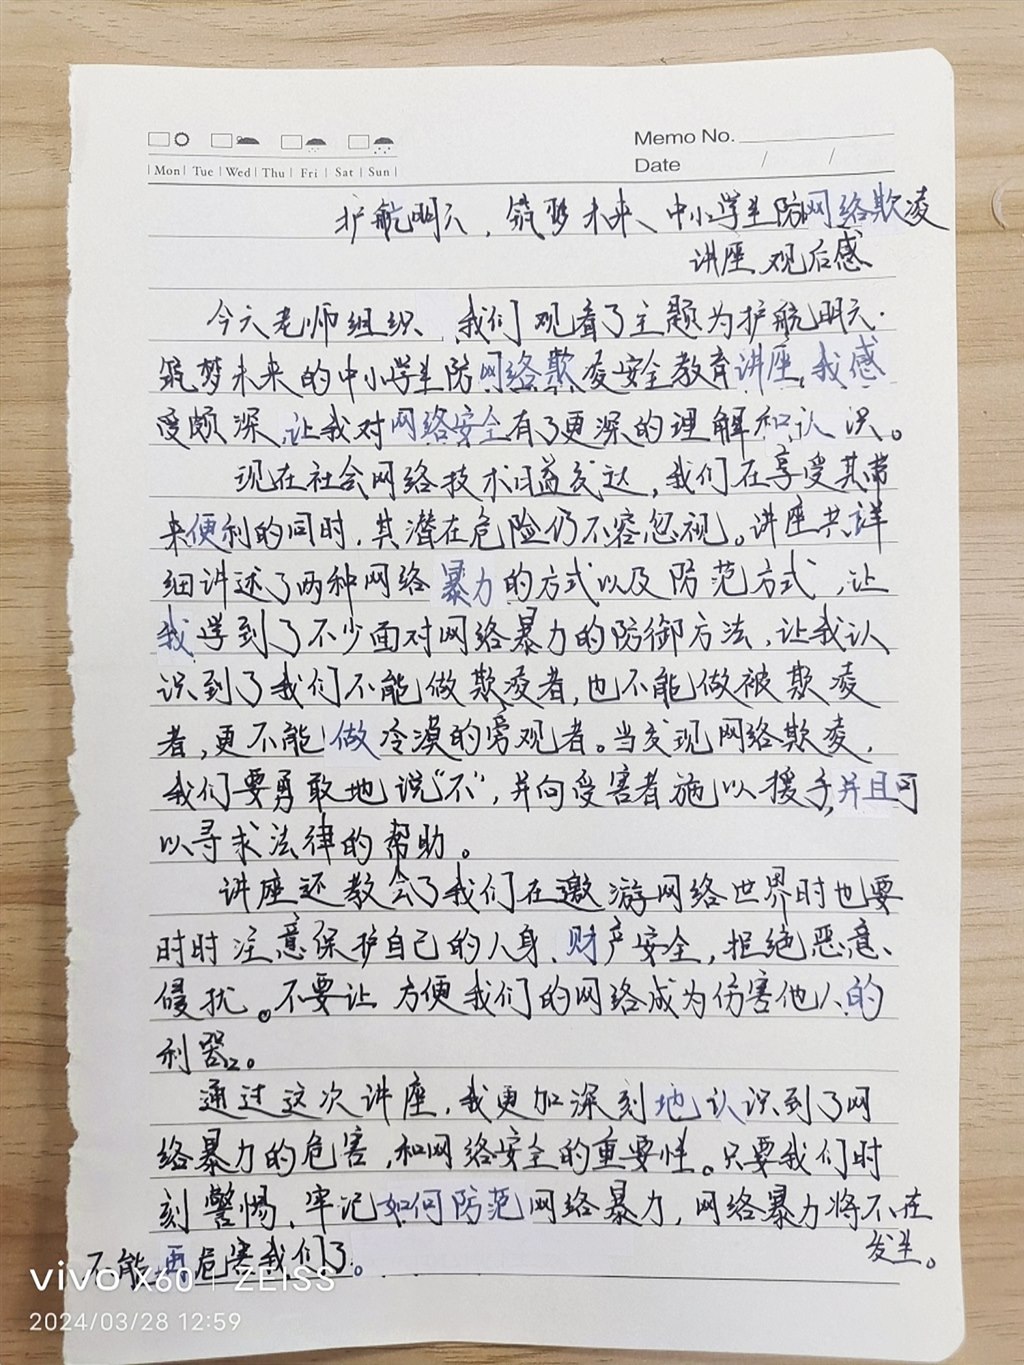 Memo No.
Mon Tue Wed Thu Fri Sat Sun
Date / /
护航明天,筑梦未来、中小学生防网络欺凌
讲座观后感
今天老师组织我们观看了主题为护航明天.
筑梦未来的中小学生防网络欺凌安全教育讲座,我感
受颇深,让我对网络安全有了更深的理解和认识。
现在社会网络技术日益发达,我们在享受其带
来便利的同时,其潜在危险仍不容忽视。讲座共详
细讲述了两种网络暴力的方式以及防范方式,让
我学到了不少面对网络暴力的防御方法,让我认
识到了我们不能做欺凌者,也不能做被欺凌
者,更不能做冷漠的旁观者。当发现网络欺凌,
我们要勇敢地说“不”,并向受害者施以援手,并且可
以寻求法律的帮助。
讲座还教会了我们在遨游网络世界时也要
时时注意保护自己的人身、财产安全,拒绝恶意、
侵扰。不要让方便我们的网络成为伤害他人的
利器。
通过这次讲座,我更加深刻地认识到了网
络暴力的危害,和网络安全的重要性。只要我们时
刻警惕、牢记如何防范网络暴力,网络暴力将不在
发生。
不能再危害我们了。
vivo X60 | ZEISS
2024/03/28 12:59